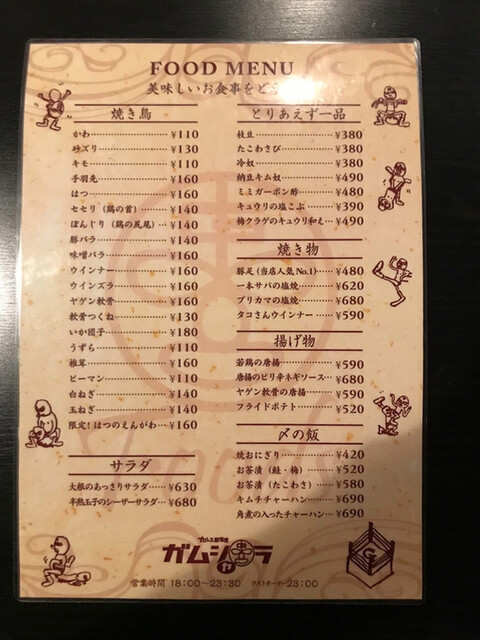 FOOD MENU
美味しいお食事をど
焼き鳥
かわ ¥110
砂ズリ ¥130
キモ ¥110
手羽先 ¥160
はつ ¥160
セセリ（鶏の首） ¥140
ぼんじり（鶏の尻尾） ¥140
豚バラ ¥140
味噌バラ ¥160
ウインナー ¥160
ウインズラ ¥160
ヤゲン軟骨 ¥160
軟骨つくね ¥130
いか団子 ¥180
うずら ¥110
椎茸 ¥160
ピーマン ¥110
白ねぎ ¥140
玉ねぎ ¥140
限定! はつのえんがわ ¥160
サラダ
大根のあっさりサラダ ¥630
半熟玉子のシーザーサラダ ¥680
とりあえず一品
枝豆 ¥380
たこわさび ¥380
冷奴 ¥380
納豆キム奴 ¥480
ミミガーポン酢 ¥480
キュウリの塩こぶ ¥390
梅クラゲのキュウリ和え ¥490
焼き物
豚足（当店人気No.1） ¥480
一本サバの塩焼 ¥620
ブリカマの塩焼 ¥680
タコさんウインナー ¥590
揚げ物
若鶏の唐揚 ¥590
唐揚のピリ辛ネギソース ¥680
ヤゲン軟骨の唐揚 ¥590
フライドポテト ¥520
〆の飯
焼おにぎり ¥420
お茶漬（鮭・梅） ¥520
お茶漬（たこわさ） ¥580
キムチチャーハン ¥690
角煮の入ったチャーハン ¥690
プロレス居酒屋
ガムシャラ
営業時間 18:00〜23:30 ラストオーダー23:00